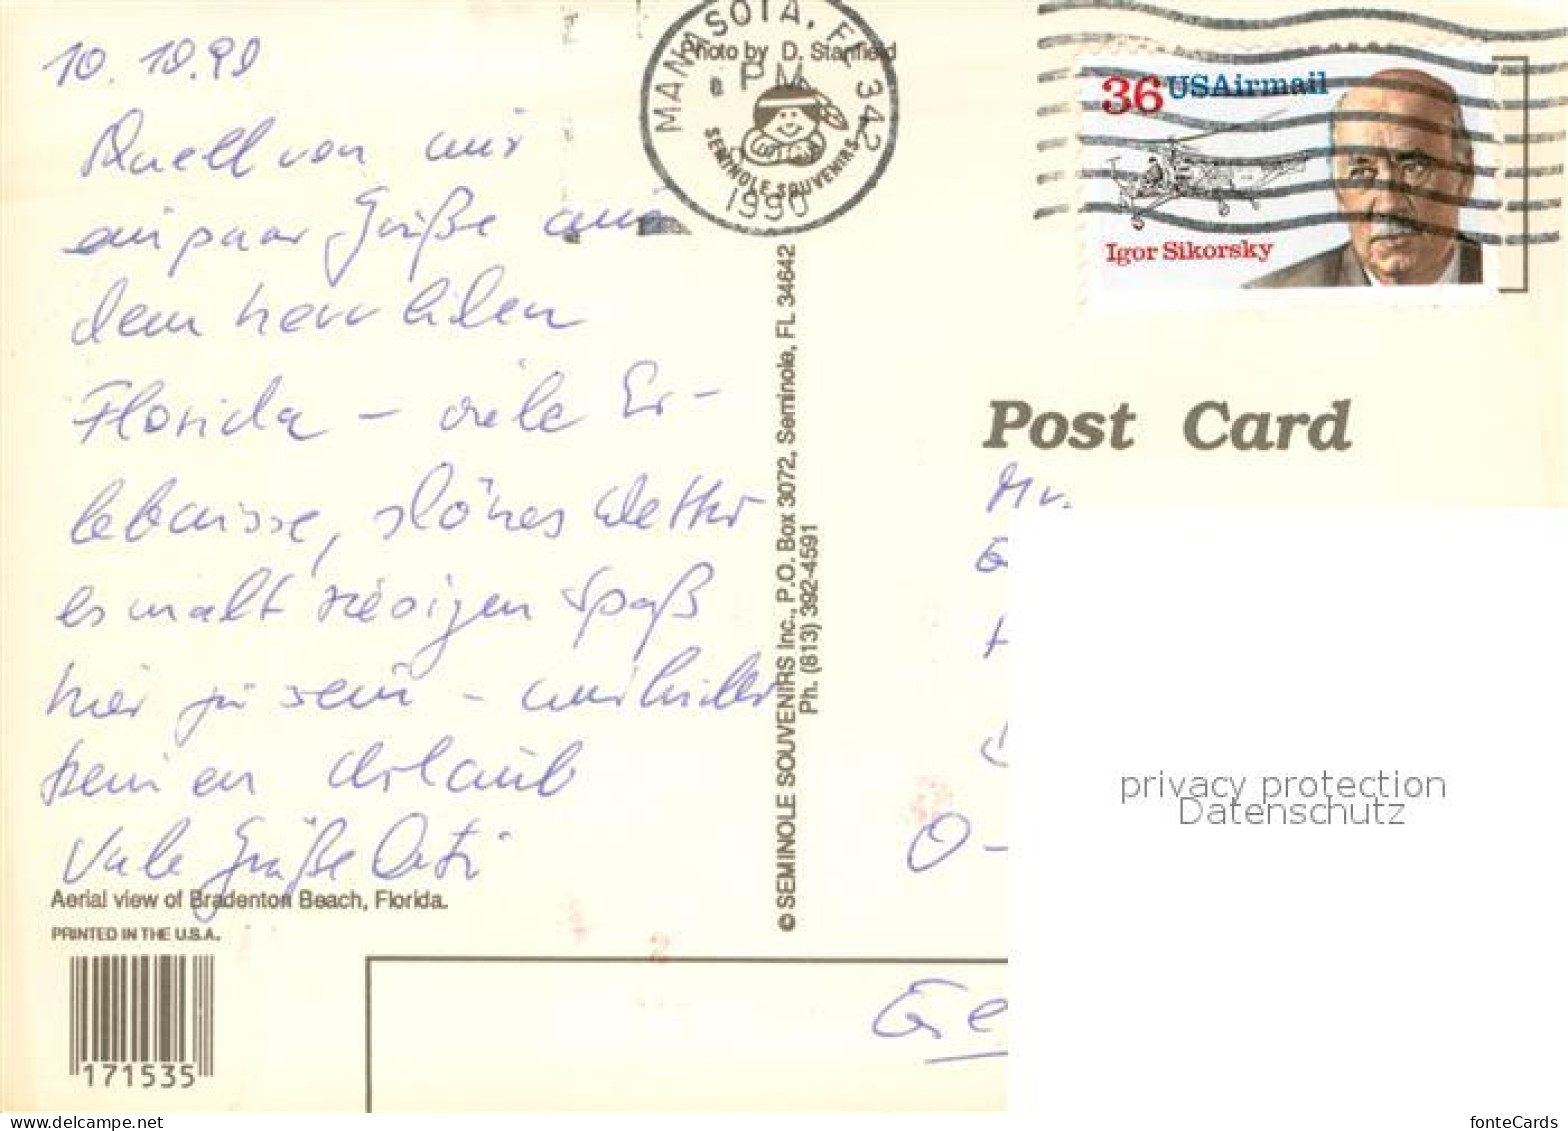 10. 10. 90
von mir
ein paar Grüße aus
dem herrlichen
Florida – viele Er-
lebnisse, schönes Wetter
es macht riesigen Spaß
hier zu sein –
Urlaub
Viele Grüße
Aerial view of Bradenton Beach, Florida.
PRINTED IN THE U.S.A.
171535
MANASOTA, FL 342
PM
1990
Photo by D. Stanfield
SEMINOLE SOUVENIRS
© SEMINOLE SOUVENIRS Inc., P.O. Box 3072, Seminole, FL 34642
Ph. (813) 392-4591
36 USAirmail
Igor Sikorsky
Post Card
Mr.
O-
Ge
privacy protection
Datenschutz
www.delcampe.net
fonteCards